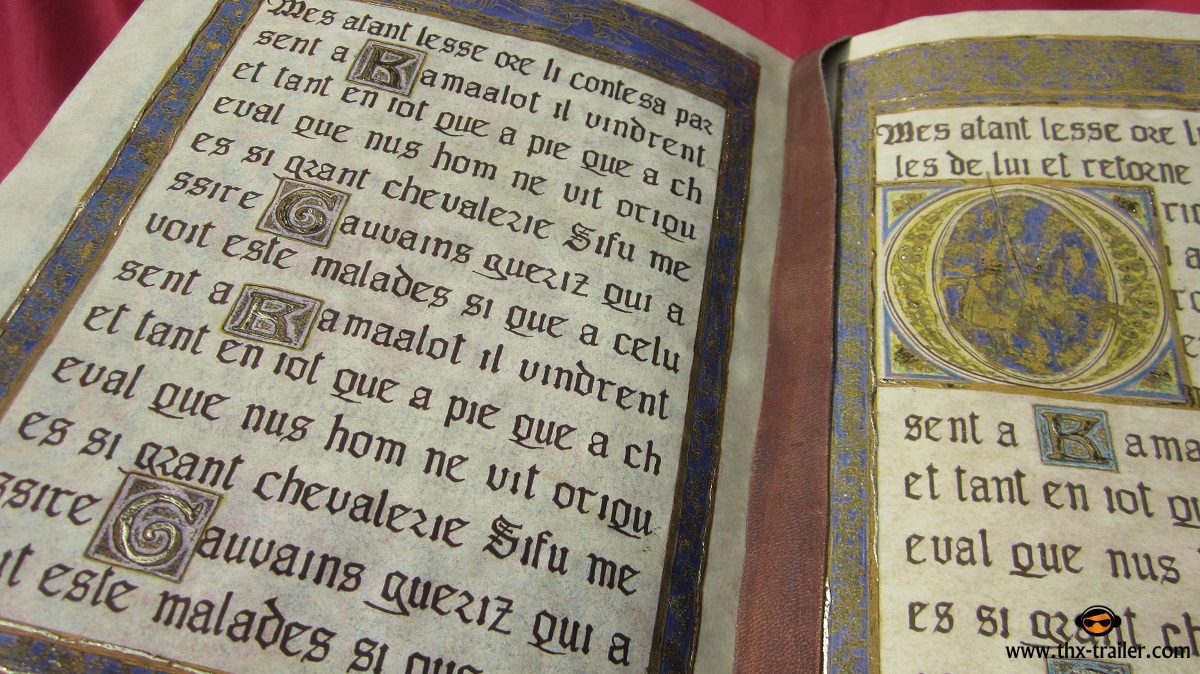 Mes atant lesse ore li contesa par
sent a Kamaalot il vindrent
et tant en iot que a pie que a ch
eval que nus hom ne vit oriqu
es si grant chevalerie Sifu me
ssire Gauvains gueriz qui a
voit este malades si que a celu
sent a Kamaalot il vindrent
et tant en iot que a pie que a ch
eval que nus hom ne vit oriqu
es si grant chevalerie Sifu me
ssire Gauvains gueriz qui a
it este malades si que
Mes atant lesse ore l
les de lui et retorne
sent a Kama
et tant en iot qu
eval que nus
es si grant ch
www.thx-trailer.com